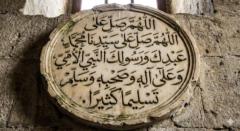 اللهم صل على
اللهم صل على سيدنا محمد
عبدك ورسولك النبي الأمي
وعلى آله وصحبه وسلم
تسليما كثيرا